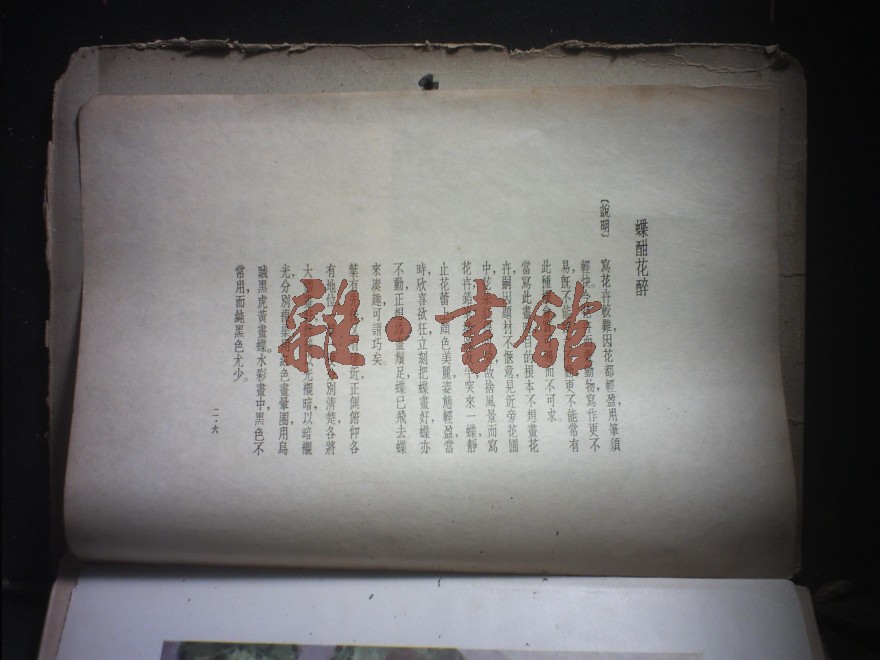 蝶酣花醉
【說明】
寫花卉較難，因花都輕盈，用筆須
輕快。動物寫作更不
易，旣不能更不能常有
此種而不可求。
當寫此畫目的根本不想畫花
卉，嗣以題材不愜意，見近旁花圃
中，花故捨風景而寫
花卉，突來一蝶，靜
止花蕾顏色美麗，姿態輕盈，當
時欣喜欲狂，立刻把蝶畫好，蝶亦
不動，正想畫續足，蝶已飛去，蝶
來湊趣，可謂巧矣。
葉有近正側俯仰，各
有地位別清楚，各將
大光襯暗，以暗襯
光，分別色畫暈圈，用烏
賊黑虎黃畫蝶。水彩畫中，黑色不
常用，而純黑色尤少。
二·六
雜·書館